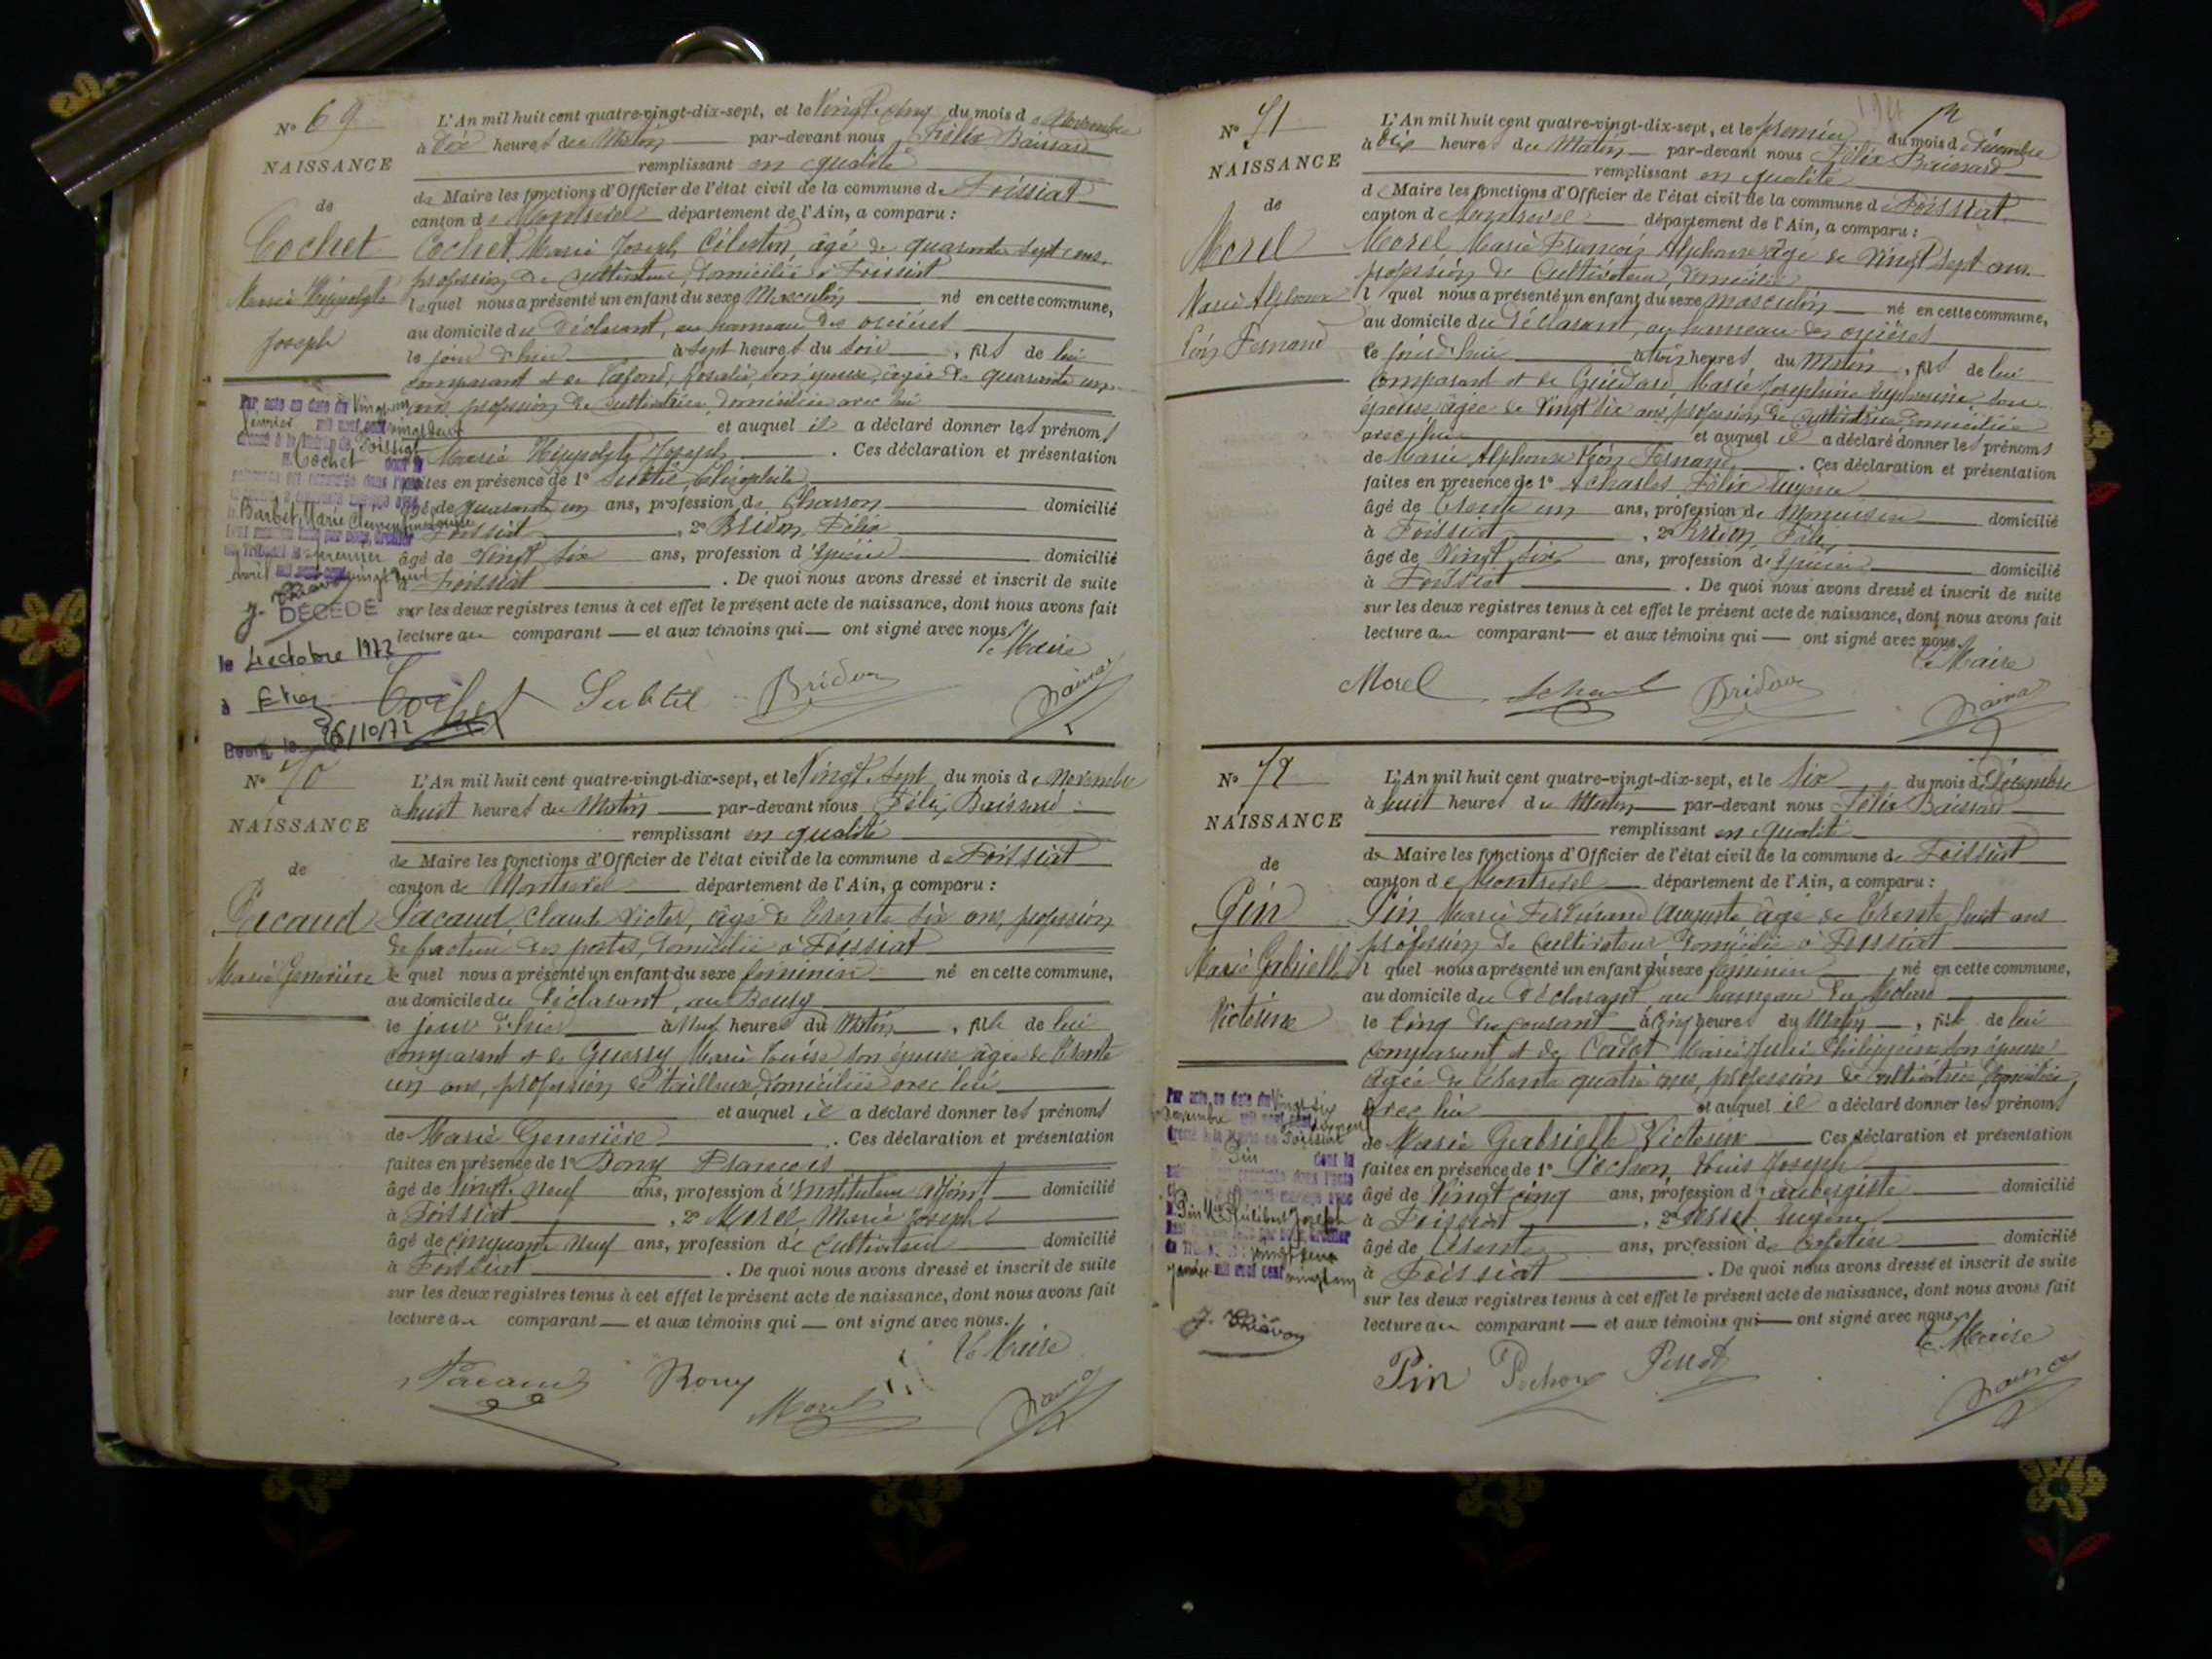 N° 69
NAISSANCE
de
Cochet
Marie Hippolyte
Joseph
L'An mil huit cent quatre-vingt-dix-sept, et le Vingt cinq du mois de Novembre
à dix heures du Matin par-devant nous Félix Baissard
remplissant en qualité
de Maire les fonctions d'Officier de l'état civil de la commune de Foissiat
canton de Montrevel département de l'Ain, a comparu :
Cochet Marie Joseph Célestin âgé de quarante sept ans,
profession de cultivateur, domicilié à Foissiat
lequel nous a présenté un enfant du sexe Masculin né en cette commune,
au domicile du déclarant, au hameau des
le jour d'hier à sept heures du soir, fils de lui
comparant et de Lafond, Rosalie, son épouse, âgée de quarante un
ans, profession de cultivatrice domiciliée avec lui
et auquel il a déclaré donner les prénoms
de Marie Hippolyte Joseph. Ces déclaration et présentation
faites en présence de 1° Subtil
âgé de quarante un ans, profession de Charron domicilié
à Foissiat, 2° Bridon, Félix
âgé de vingt six ans, profession d'épicier domicilié
à Foissiat. De quoi nous avons dressé et inscrit de suite
sur les deux registres tenus à cet effet le présent acte de naissance, dont nous avons fait
lecture au comparant et aux témoins qui ont signé avec nous.
Le Maire
Cochet Subtil Bridon
Par acte en date du Vingt
février mil neuf cent vingt deux
dressé à la Mairie de Foissiat
M. Cochet dont la
Barbet, Marie Clémentine
premier
Avril
DÉCÉDÉ
le 4 octobre 1972
à
26/10/72
N° 70
NAISSANCE
de
Pacaud
Marie Geneviève
L'An mil huit cent quatre-vingt-dix-sept, et le Vingt Sept du mois de Novembre
à huit heures du Matin par-devant nous Félix Baissard
remplissant en qualité
de Maire les fonctions d'Officier de l'état civil de la commune de Foissiat
canton de Montrevel département de l'Ain, a comparu :
Pacaud Claude Victor, âgé de trente six ans, profession
de facteur des postes, domicilié à Foissiat
lequel nous a présenté un enfant du sexe féminin né en cette commune,
au domicile du déclarant, au Bourg
le jour d'hier à neuf heures du Matin, fille de lui
comparant et de Guerry Marie Louise son épouse âgée de trente
un ans, profession de tailleuse, domiciliée avec lui
et auquel il a déclaré donner les prénoms
de Marie Geneviève. Ces déclaration et présentation
faites en présence de 1° Rony François
âgé de vingt neuf ans, profession d'instituteur adjoint domicilié
à Foissiat, 2° Morel Marie Joseph
âgé de cinquante neuf ans, profession de cultivateur domicilié
à Foissiat. De quoi nous avons dressé et inscrit de suite
sur les deux registres tenus à cet effet le présent acte de naissance, dont nous avons fait
lecture au comparant et aux témoins qui ont signé avec nous.
Le Maire
Pacaud Rony Morel
N° 71
NAISSANCE
de
Morel
Marie Alphonse
Léon Fernand
L'An mil huit cent quatre-vingt-dix-sept, et le premier du mois de Décembre
à dix heures du Matin par-devant nous Félix Baissard
remplissant en qualité
de Maire les fonctions d'Officier de l'état civil de la commune de Foissiat
canton de Montrevel département de l'Ain, a comparu :
Morel Marie François Alphonse âgé de vingt sept ans
profession de Cultivateur, domicilié
lequel nous a présenté un enfant du sexe masculin né en cette commune,
au domicile du déclarant, au hameau des
le jour d'hui à trois heures du Matin, fils de lui
comparant et de Marie Josephine son
épouse âgée de vingt six ans, profession de cultivatrice, domiciliée
avec lui et auquel il a déclaré donner les prénoms
de Marie Alphonse Léon Fernand. Ces déclaration et présentation
faites en présence de 1° Félix
âgé de trente un ans, profession de Menuisier domicilié
à Foissiat, 2° Bridon Félix
âgé de vingt six ans, profession d'épicier domicilié
à Foissiat. De quoi nous avons dressé et inscrit de suite
sur les deux registres tenus à cet effet le présent acte de naissance, dont nous avons fait
lecture au comparant et aux témoins qui ont signé avec nous.
Le Maire
Morel Bridon
N° 72
NAISSANCE
de
Pin
Marie Gabrielle
Victorine
L'An mil huit cent quatre-vingt-dix-sept, et le six du mois de Décembre
à huit heures du Matin par-devant nous Félix Baissard
remplissant en qualité
de Maire les fonctions d'Officier de l'état civil de la commune de Foissiat
canton de Montrevel département de l'Ain, a comparu :
Pin Marie Ferdinand Auguste âgé de trente huit ans
profession de cultivateur domicilié à Foissiat
lequel nous a présenté un enfant du sexe féminin né en cette commune,
au domicile du déclarant au hameau du
le cinq du courant à cinq heures du Matin, fille de lui
comparant et de Cadot Marie Julie Philippine son épouse
âgée de trente quatre ans, profession de cultivatrice, domiciliée
avec lui et auquel il a déclaré donner les prénoms
de Marie Gabrielle Victorine Ces déclaration et présentation
faites en présence de 1° Pochon, Louis Joseph
âgé de vingt cinq ans, profession d'aubergiste domicilié
à Foissiat, 2° Perret Eugène
âgé de trente ans, profession de cafetier domicilié
à Foissiat. De quoi nous avons dressé et inscrit de suite
sur les deux registres tenus à cet effet le présent acte de naissance, dont nous avons fait
lecture au comparant et aux témoins qui ont signé avec nous.
Le Maire
Pin Pochon Perret
Par acte en date du vingt six
Novembre mil neuf cent
dressé à la Mairie de Foissiat
Pin dont la
Pin Philibert Joseph
janvier mil neuf cent vingt